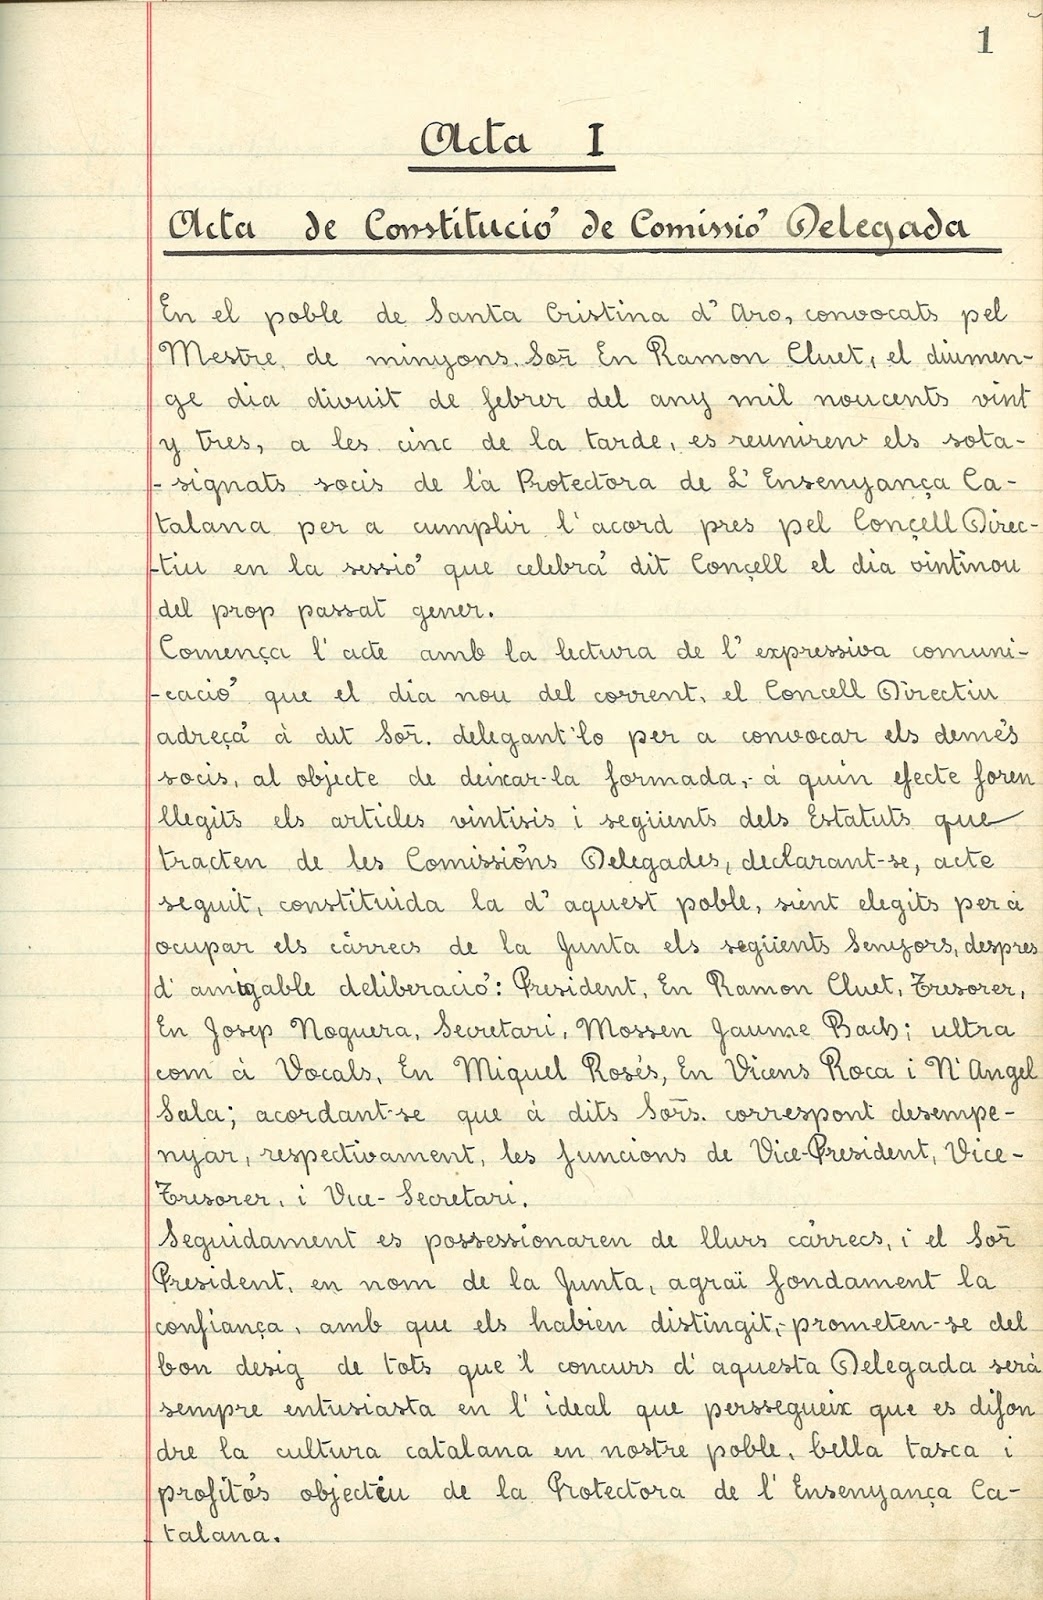 1
Acta I
Acta de Constitució de Comissió Delegada
En el poble de Santa Cristina d'Aro, convocats pel
Mestre de minyons, Sor̄ En Ramon Cluet, el diumen-
ge dia divuit de febrer del any mil noucents vint
y tres, a les cinc de la tarde, es reuniren els sota-
-signats socis de la Protectora de L'Ensenyança Ca-
talana per a cumplir l'acord pres pel Conçell Direc-
-tiu en la sessió que celebrá dit Conçell el dia vintinou
del prop passat gener.
Comença l'acte amb la lectura de l'expressiva comuni-
-cació que el dia nou del corrent, el Concell Directiu
adreçá á dit Sor̄. delegant'lo per a convocar els demés
socis, al objecte de deixar-la formada,- á quin efecte foren
llegits els articles vintisis i següents dels Estatuts que
tracten de les Comissións Delegades, declarant-se, acte
seguit, constituida la d'aquest poble, sient elegits per á
ocupar els càrrecs de la Junta els següents Senyors, despres
d'amigable deliberació: President, En Ramon Cluet, Tresorer,
En Josep Noguera, Secretari, Mossen Jaume Bach; ultra
com á Vocals, En Miquel Rosés, En Vicens Roca i N'Angel
Sala; acordant-se que á dits Sors̄. correspont desempe-
nyar, respectivament, les funcions de Vice-President, Vice-
Tresorer, i Vice-Secretari.
Seguidament es possessionaren de llurs càrrecs, i el Sor̄
President, en nom de la Junta, agraï fondament la
confiança, amb que els habien distingit,- prometen-se del
bon desig de tots que'l concurs d'aquesta Delegada será
sempre entusiasta en l'ideal que perssegueix que es difon
dre la cultura catalana en nostre poble, bella tasca i
profitós objectiu de la Protectora de l'Ensenyança Ca-
-talana.